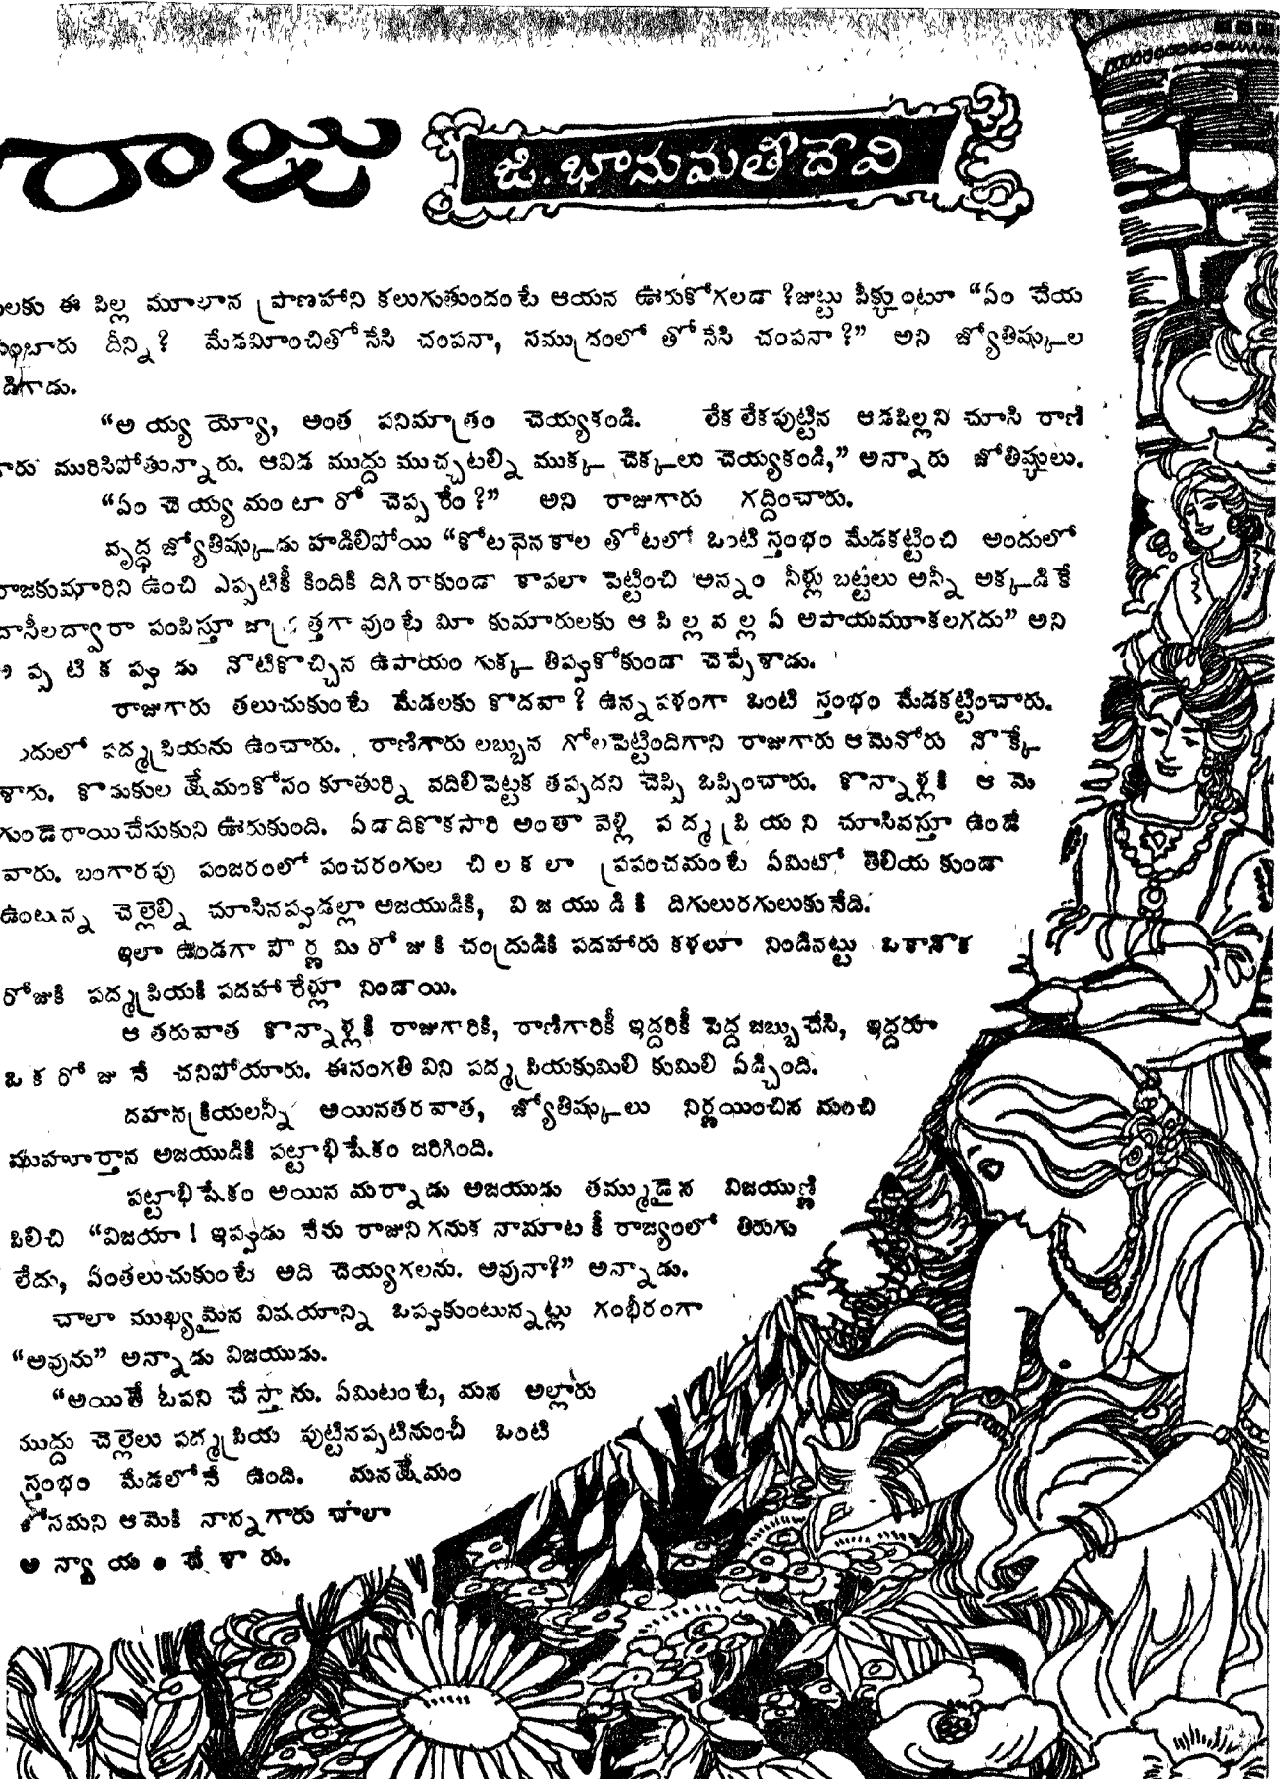 రాజు
జి. భానుమతీదేవి
లకు ఈ పిల్ల మూలాన ప్రాణహాని కలుగుతుందంటే ఆయన ఊరుకోగలడా ? జుట్టు పీక్కుంటూ “ఏం చేయ
మంటారు దీన్ని? మేడమీంచితోసేసి చంపనా, సముద్రంలో తోసేసి చంపనా ?” అని జ్యోతిష్కుల
డిగాడు.
“అ య్య య్యో, అంత పనిమాత్రం చెయ్యకండి. లేక లేకపుట్టిన ఆడపిల్లని చూసి రాణి
గారు మురిసిపోతున్నారు. ఆవిడ ముద్దు ముచ్చటల్ని ముక్క చెక్కలు చెయ్యకండి,” అన్నారు జోతిష్కులు.
“ఏం చె య్య మం టా రో చెప్ప రేం ?” అని రాజుగారు గద్దించారు.
వృద్ధ జ్యోతిష్కుడు హడిలిపోయి “కోటవైనకాల తోటలో ఒంటి స్తంభం మేడకట్టించి అందులో
రాజకుమారిని ఉంచి ఎప్పటికీ కిందికి దిగిరాకుండా కాపలా పెట్టించి అన్నం నీళ్లు బట్టలు అన్నీ అక్కడికే
దాసీలద్వారా పంపిస్తూ జాగ్రత్తగా వుంటే మీ కుమారులకు ఆ పి ల్ల వ ల్ల ఏ అపాయమూకలగదు” అని
అ ప్ప టి క ప్పు డు నోటికొచ్చిన ఉపాయం గుక్క తిప్పుకోకుండా చెప్పేశాడు.
రాజుగారు తలుచుకుంటే మేడలకు కొదవా ? ఉన్నపళంగా ఒంటి స్తంభం మేడకట్టించారు.
ందులో పద్మప్రియను ఉంచారు. రాణిగారు లబ్బున గోలపెట్టిందిగాని రాజుగారు ఆమెనోరు నొక్కే
శారు. కొడుకుల క్షేమంకోసం కూతుర్ని వదిలిపెట్టక తప్పదని చెప్పి ఒప్పించారు. కొన్నాళ్లకి ఆ మె
గుండెరాయిచేసుకుని ఊరుకుంది. ఏడాదికొకసారి అంతా వెళ్లి ప ద్మ ప్రి య ని చూసివస్తూ ఉండే
వారు. బంగారపు పంజరంలో పంచరంగుల చి ల క లా ప్రపంచమంటే ఏమిటో తెలియ కుండా
ఉంటున్న చెల్లెల్ని చూసినప్పుడల్లా అజయుడికి, వి జ యు డి కి దిగులురగులుకునేది.
ఇలా ఉండగా పౌ ర్ణ మి రో జు కి చంద్రుడికి పదహారు కళలూ నిండినట్టు ఒకానొక
రోజుకి పద్మప్రియకి పదహారేళ్లూ నిండాయి.
ఆ తరువాత కొన్నాళ్లకి రాజుగారికి, రాణిగారికీ ఇద్దరికీ పెద్ద జబ్బుచేసి, ఇద్దరూ
ఒ క రో జు నే చనిపోయారు. ఈసంగతి విని పద్మప్రియకుమిలి కుమిలి ఏడ్చింది.
దహనక్రియలన్నీ అయినతరవాత, జ్యోతిష్కులు నిర్ణయించిన మంచి
ముహూర్తాన అజయుడికి పట్టాభిషేకం జరిగింది.
పట్టాభిషేకం అయిన మర్నాడు అజయుడు తమ్ముడైన విజయుణ్ణి
పిలిచి “విజయా ! ఇప్పుడు నేను రాజుని గనుక నామాట కీ రాజ్యంలో తిరుగు
లేదు, ఏంతలుచుకుంటే అది చెయ్యగలను. అవునా?” అన్నాడు.
చాలా ముఖ్యమైన విషయాన్ని ఒప్పుకుంటున్నట్లు గంభీరంగా
“అవును” అన్నాడు విజయుడు.
“అయితే ఓపని చేస్తాను. ఏమిటంటే, మన అల్లారు
ముద్దు చెల్లెలు పద్మప్రియ పుట్టినప్పటినుంచీ ఒంటి
స్తంభం మేడలోనే ఉంది. మనక్షేమం
కోసమని ఆమెకి నాన్నగారు చాలా
అ న్యా య ం చే శా రు.